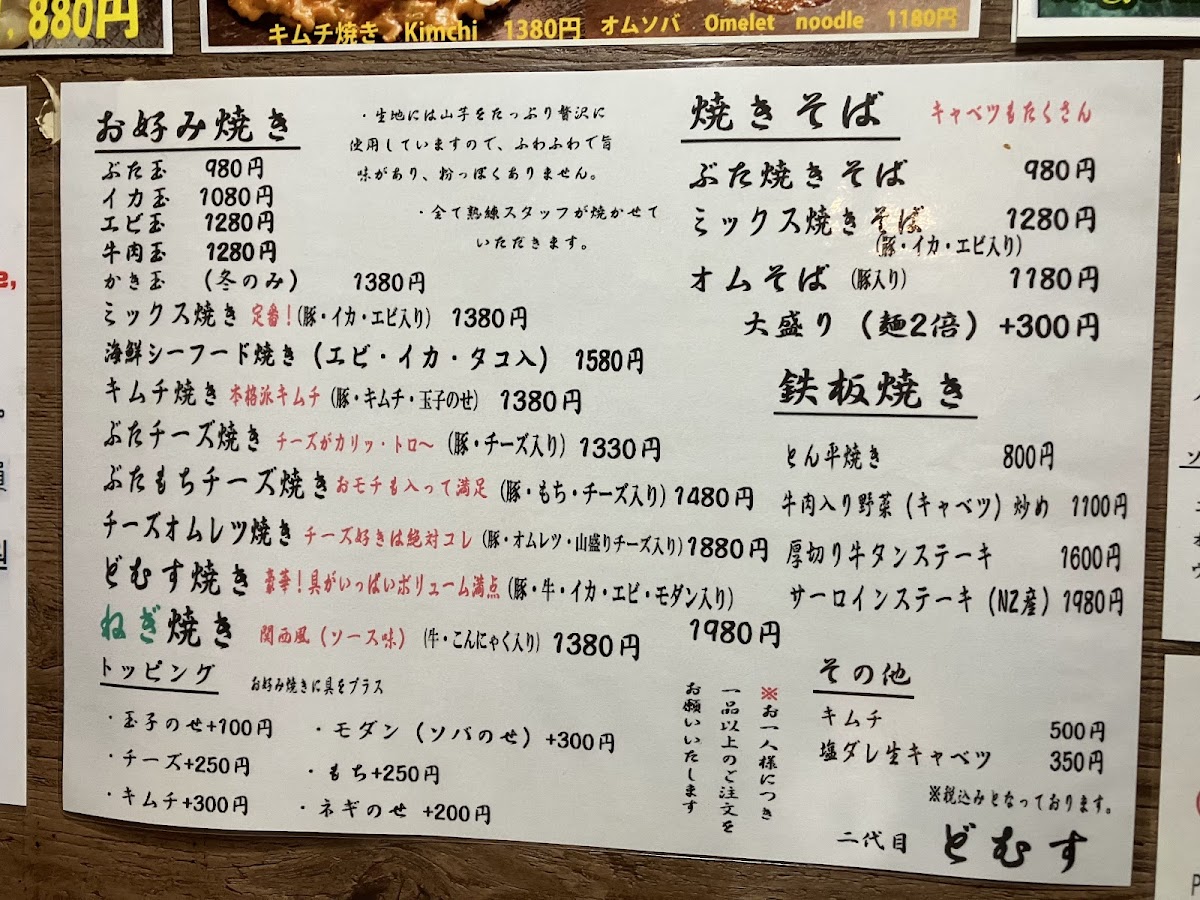 880円
キムチ焼き Kimchi 1380円 オムソバ Omelet noodle 1180円
お好み焼き
ぶた玉 980円
イカ玉 1080円
エビ玉 1280円
牛肉玉 1280円
かき玉 (冬のみ) 1380円
・生地には山芋をたっぷり贅沢に
使用していますので、ふわふわで旨
味があり、粉っぽくありません。
・全て熟練スタッフが焼かせて
いただきます。
ミックス焼き 定番!(豚・イカ・エビ入り) 1380円
海鮮シーフード焼き (エビ・イカ・タコ入) 1580円
キムチ焼き 本格派キムチ (豚・キムチ・玉子のせ) 1380円
ぶたチーズ焼き チーズがカリッ・トロ〜 (豚・チーズ入り) 1330円
ぶたもちチーズ焼き おモチも入って満足 (豚・もち・チーズ入り) 1480円
チーズオムレツ焼き チーズ好きは絶対コレ (豚・オムレツ・山盛りチーズ入り) 1880円
どむす焼き 豪華!具がいっぱいボリューム満点 (豚・牛・イカ・エビ・モダン入り)
1980円
ねぎ焼き 関西風 (ソース味) (牛・こんにゃく入り) 1380円
トッピング お好み焼きに具をプラス
・玉子のせ+100円
・チーズ+250円
・キムチ+300円
・モダン (ソバのせ) +300円
・もち+250円
・ネギのせ +200円
※お一人様につき
一品以上のご注文を
お願いいたします
焼きそば キャベツもたくさん
ぶた焼きそば 980円
ミックス焼きそば 1280円
(豚・イカ・エビ入り)
オムそば (豚入り) 1180円
大盛り (麺2倍) +300円
鉄板焼き
とん平焼き 800円
牛肉入り野菜 (キャベツ) 炒め 1100円
厚切り牛タンステーキ 1600円
サーロインステーキ (NZ産) 1980円
その他
キムチ 500円
塩ダレ生キャベツ 350円
※税込みとなっております。
二代目 どむす